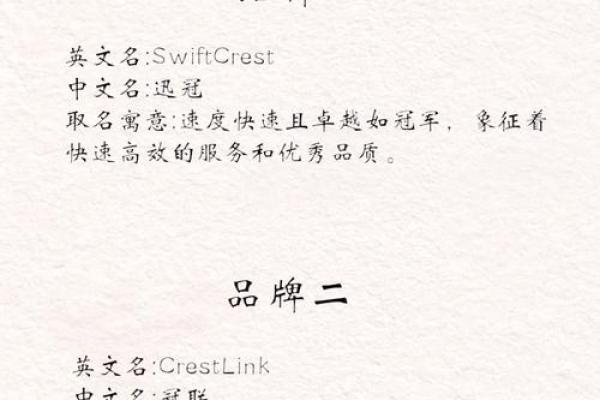 英文名:SwiftCrest
中文名:迅冠
取名寓意:速度快速且卓越如冠军，象征着
快速高效的服务和优秀品质。
品牌二
英文名:CrestLink
中文名:冠联